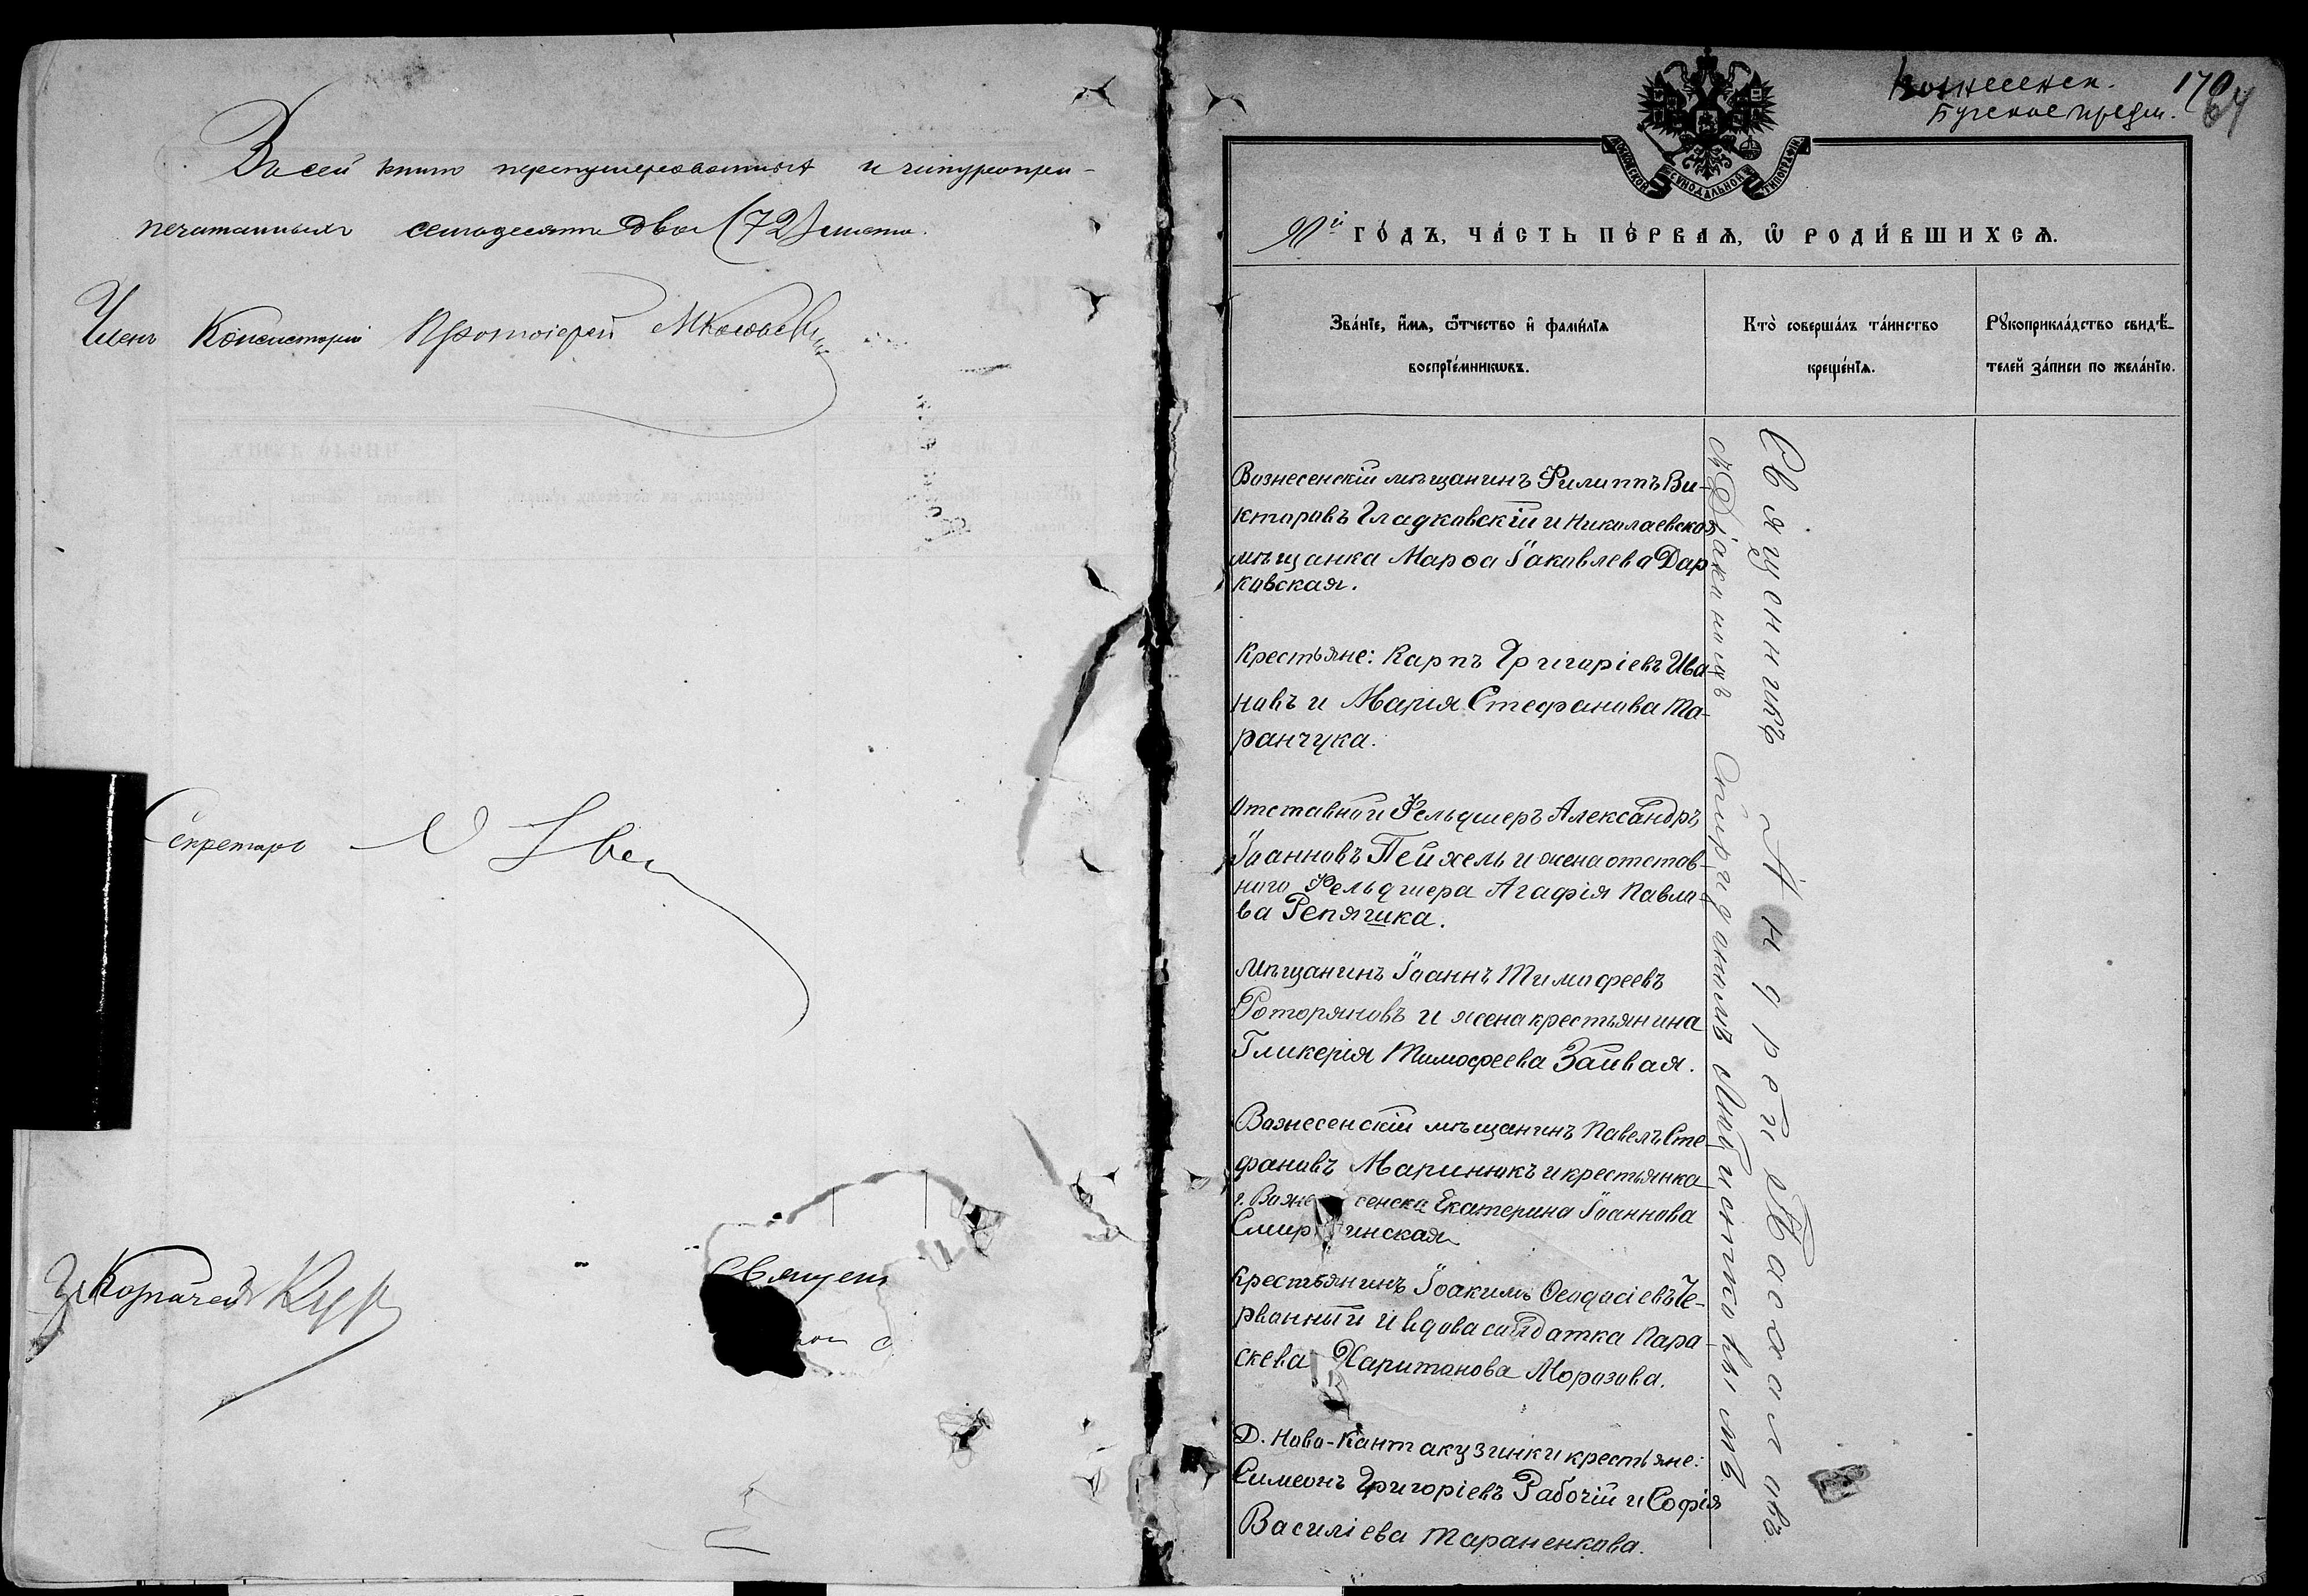 Въ сей книгѣ перенумерованныхъ и шнуропри-
печатанныхъ семьдесятъ два (72) листа.
Членъ Консисторіи Протоіерей
Секретарь
Священ
Вознесенск.
Бугское предм.
170
64
МОСКОВСКОЙ СѴНОДАЛЬНОЙ ТИПОГРАФІИ
ГО́ДЪ, ЧА́СТЬ ПЕ́РВАѦ, Ѡ҆ РОДИ́ВШИХСѦ.
Зва́нїе, и҆́мѧ, ѻ҆́тчество и҆ фами́лїѧ
воспрїе́мникѡвъ.
Кто̀ соверша́лъ та́инство
креще́нїѧ.
Рꙋкоприкла́дство свидѣ́-
телей за́писи по жела́нїю.
Вознесенскій мѣщанинъ Филиппъ Ви-
кторовъ Гладковскій и Николаевская
мѣщанка Марѳа Іаковлева Дар
ковская.
Крестьяне: Карпъ Григоріевъ Ива-
новъ и Марія Стефанова Та-
ранчука.
Отставной Фельдшеръ Александръ
Іоанновъ Пейхель и жена отстав-
ного Фельдшера Агафія Павло-
ва Репяшка.
Мѣщанинъ Іоаннъ Тимофеевъ
Роторяновъ и жена крестьянина
Гликерія Тимофеева Заивая.
Вознесенскій мѣщанинъ Павелъ Сте
фановъ Маринюкъ и крестьянка
г. Вознесенска Екатерина Іоаннова
Смир инская
Крестьянинъ Іоакимъ Ѳеодосіевъ Че-
рванный и вдова солдатка Пара-
скева Харитонова Морозова.
Д. Ново-Кантакузинки крестьяне:
Симеонъ Григоріевъ Рабочій и Софія
Василіева Тараненкова.
Священникъ Андрей
съ Діакономъ Спиридономъ